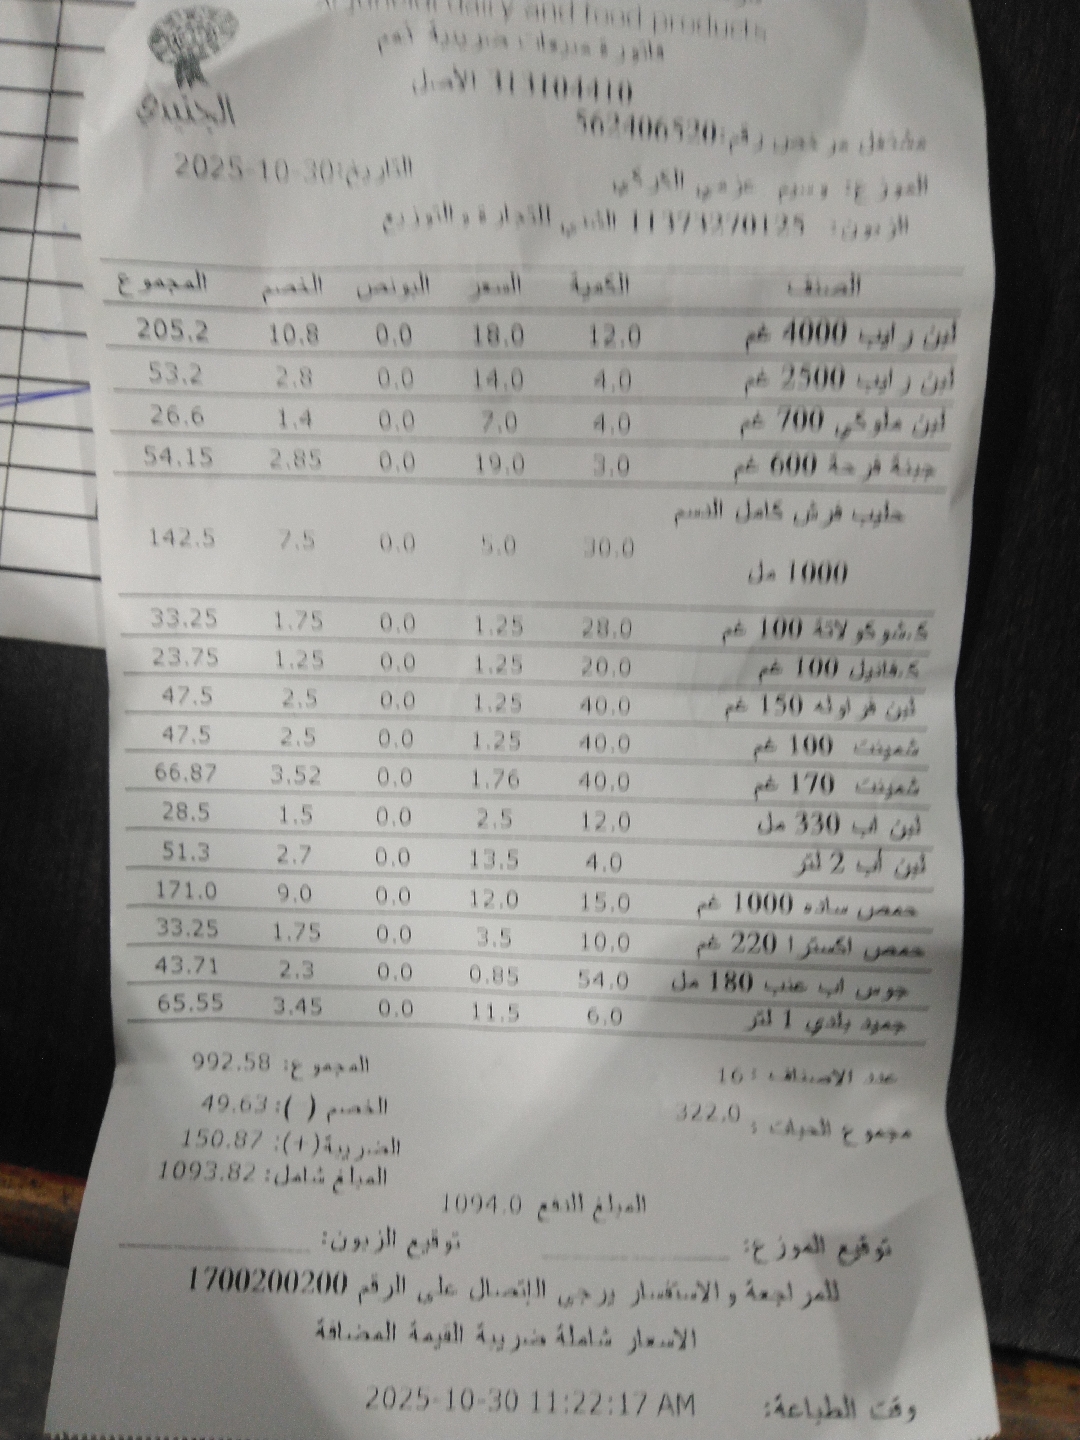 Al Junaidi dairy and food products
الجنيدي
فاتورة مبيعات ضريبية رقم
313104410 الأصل
مشتغل مرخص رقم:562406520
التاريخ:2025-10-30
الموزع: وسيم عزمي الكركي
الزبون: 11373270125 التجارة والتوزيع
الصنف الكمية السعر البونص الخصم المجموع
لبن رايب 4000 غم 12.0 18.0 0.0 10.8 205.2
لبن رايب 2500 غم 4.0 14.0 0.0 2.8 53.2
لبن ملوكي 700 غم 4.0 7.0 0.0 1.4 26.6
جبنة فرحة 600 غم 3.0 19.0 0.0 2.85 54.15
حليب فرش كامل الدسم
1000 مل 30.0 5.0 0.0 7.5 142.5
ك.شوكولاتة 100 غم 28.0 1.25 0.0 1.75 33.25
ك.فانيل 100 غم 20.0 1.25 0.0 1.25 23.75
لبن فراوله 150 غم 40.0 1.25 0.0 2.5 47.5
شمينت 100 غم 40.0 1.25 0.0 2.5 47.5
شمينت 170 غم 40.0 1.76 0.0 3.52 66.87
لبن اب 330 مل 12.0 2.5 0.0 1.5 28.5
لبن أب 2 لتر 4.0 13.5 0.0 2.7 51.3
حمص ساده 1000 غم 15.0 12.0 0.0 9.0 171.0
حمص اكسترا 220 غم 10.0 3.5 0.0 1.75 33.25
جوس اب عنب 180 مل 54.0 0.85 0.0 2.3 43.71
جميد بلدي 1 لتر 6.0 11.5 0.0 3.45 65.55
عدد الاصناف :16
المجموع: 992.58
مجموع الحبات : 322.0
الخصم ( ): 49.63
الضريبة(+): 150.87
المبلغ شامل: 1093.82
المبلغ الدفع 1094.0
توقيع الموزع: توقيع الزبون:
للمراجعة والاستفسار يرجى الإتصال على الرقم 1700200200
الاسعار شاملة ضريبة القيمة المضافة
وقت الطباعة: 2025-10-30 11:22:17 AM